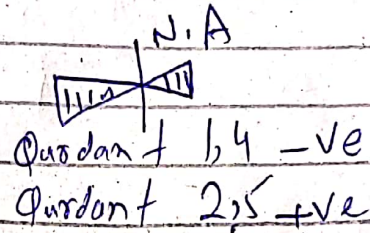 N.A
Qurdant 1,4 -ve
Qurdont 2,5 +ve